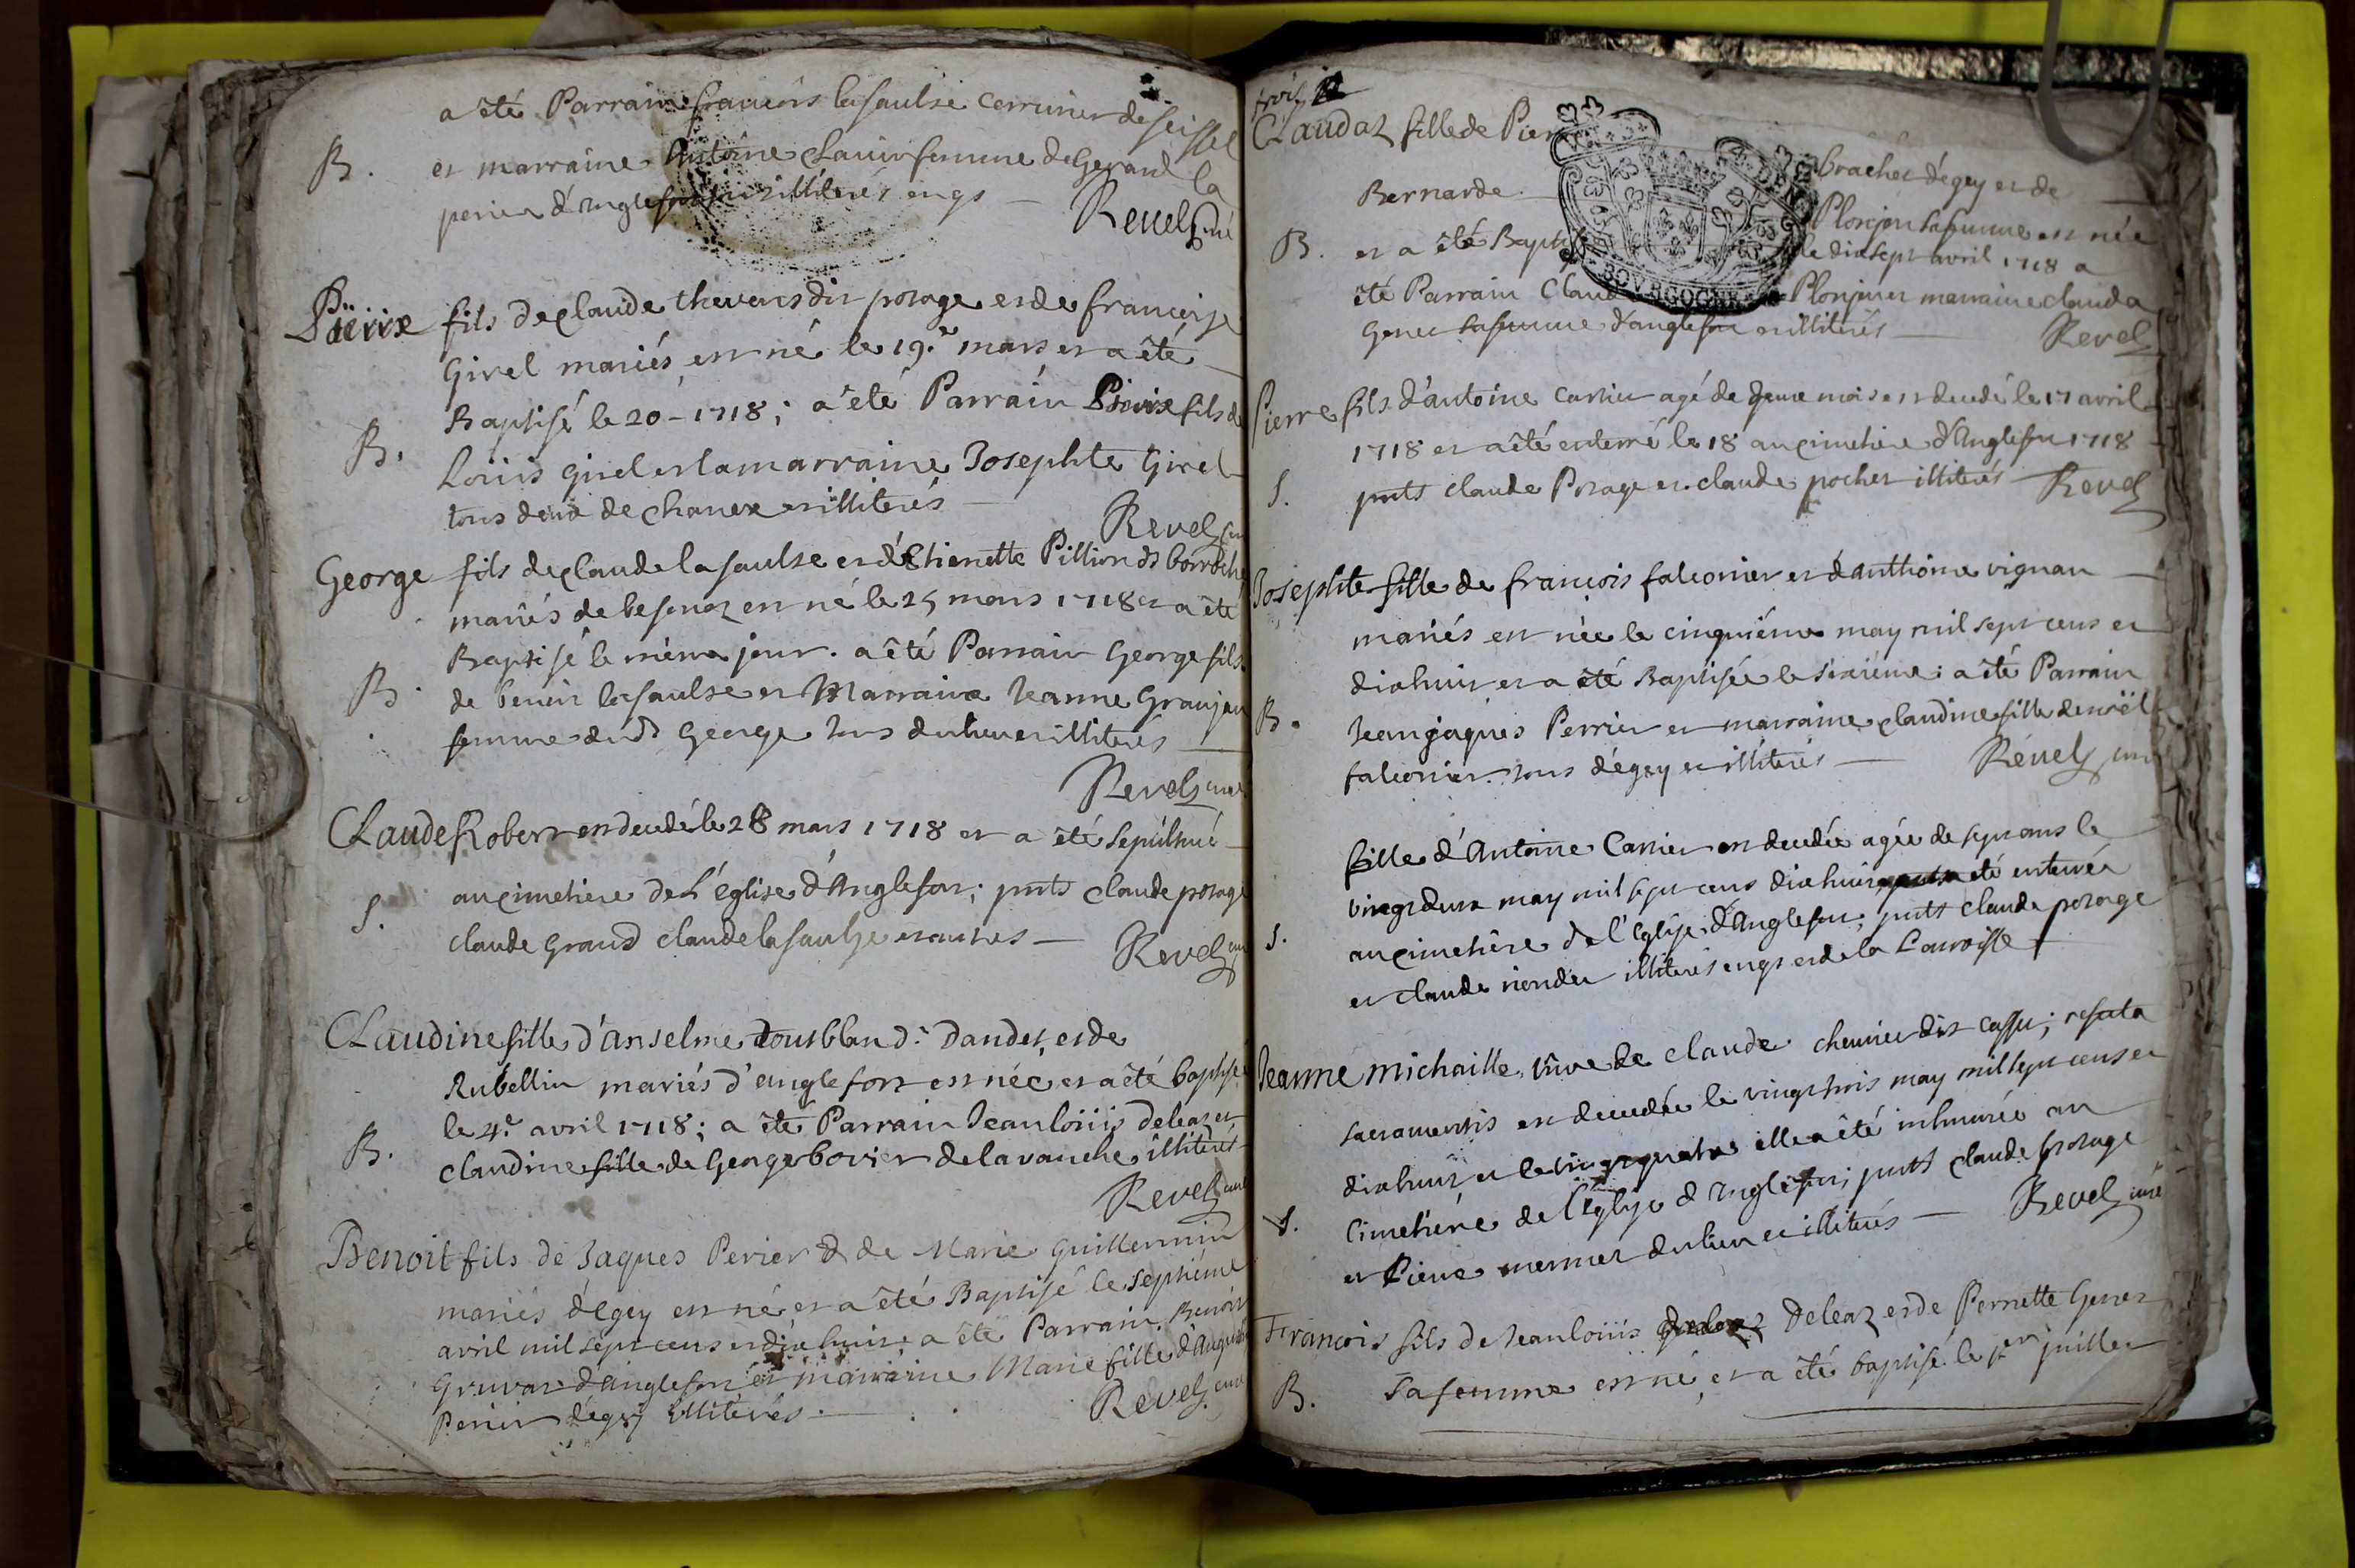 a été Parrain francois la saulse cerrurier de seissel
B. et marraine Antoine femme de Gerard la
perier d'anglefort illiterés engs — Revel curé
Pierre fils de claude thevenet dit porage et de francoise
Girel mariés est né le 19.e mars et a été
Baptisé le 20 - 1718; a été Parrain Pierre fils de
B. Loüis girel et la marraine Josephte Girel
tous deux de chanex et illiterés — Revel curé
George fils de claude la saulse et d'Etienette Pillion dt borroche
mariés de besonaz est né le 25 mars 1718 et a été
Baptisé le même jour. a été Parrain George fils
B. de benoit la saulse et Marraine Jeanne Granjean
femme dudt George tous du lieu et illiterés —
Revel curé
Claude Robert est decedé le 28 mars 1718 et a été sepulturé
S. au cimetiere de L'eglise d'Anglefort; pnts claude porage
claude grand claude la saulse et autres — Revel curé
Claudine fille d'anselme tourbland: Dandet, et de
Rubellin mariés d'anglefort est née et a été baptisé
le 4.e avril 1718; a été Parrain Jean loüis deleaz et
B. claudine fille de George bovier de lavanche illiterés
Revel curé
Benoit fils de Jaques Perier & de Marie Guillermin
mariés d'Egey est né et a été Baptisé le septiéme
avril mil sept cens et dix huit; a été Parrain Benoit
Gruvar d'anglefort et marraine Marie fille d'
Perier d'égey illiterés — Revel curé
trois
Claudaz fille de Pierre brachet d'égey et de
Bernarde Plonjon sa femme est née
B. et a été Baptisée le dix sept avril 1718 a
été Parrain Claude Plonjon et marraine clauda
Genet sa femme d'anglefort et illiterés — Revel
BOURGOGNE
Pierre fils d'antoine carrier agé de deux mois est decedé le 17 avril
1718 et a été enterré le 18 au cimetiere d'Anglefort 1718
S. pnts claude Porage et claude pochet illiterés — Revel
Josephte fille de francois falconier et d'anthoine vignan
mariés est née le cinquiéme may mil sept cens et
dix huit et a été Baptisée le sixiéme: a été Parrain
B. Jean jaques Perrier et marraine claudine fille de noël
falconier tous d'égey et illiterés — Revel curé
fille d'Antoine Carrier est decedée agée de sept ans le
vingt deux may mil sept cens dix huit a été enterrée
S. au cimetiere de l'Eglise d'Anglefort; pnts claude porage
et claude illiterés engs et de la Parroisse
Jeanne michaille veuve de claude chennier dit cassu; refecta
sacramentis est decedée le vingt trois may mil sept cens et
dix huit et le vingt quatre elle a été inhumée au
S. cimetiere de l'Eglise d'Anglefort; pntt claude porage
et Pierre mermet du lieu et illiterés — Revel curé
Francois fils de Jean loüis Deleaz et de Pernette Genet
B. sa femme est né, et a été baptisé le jer juillet